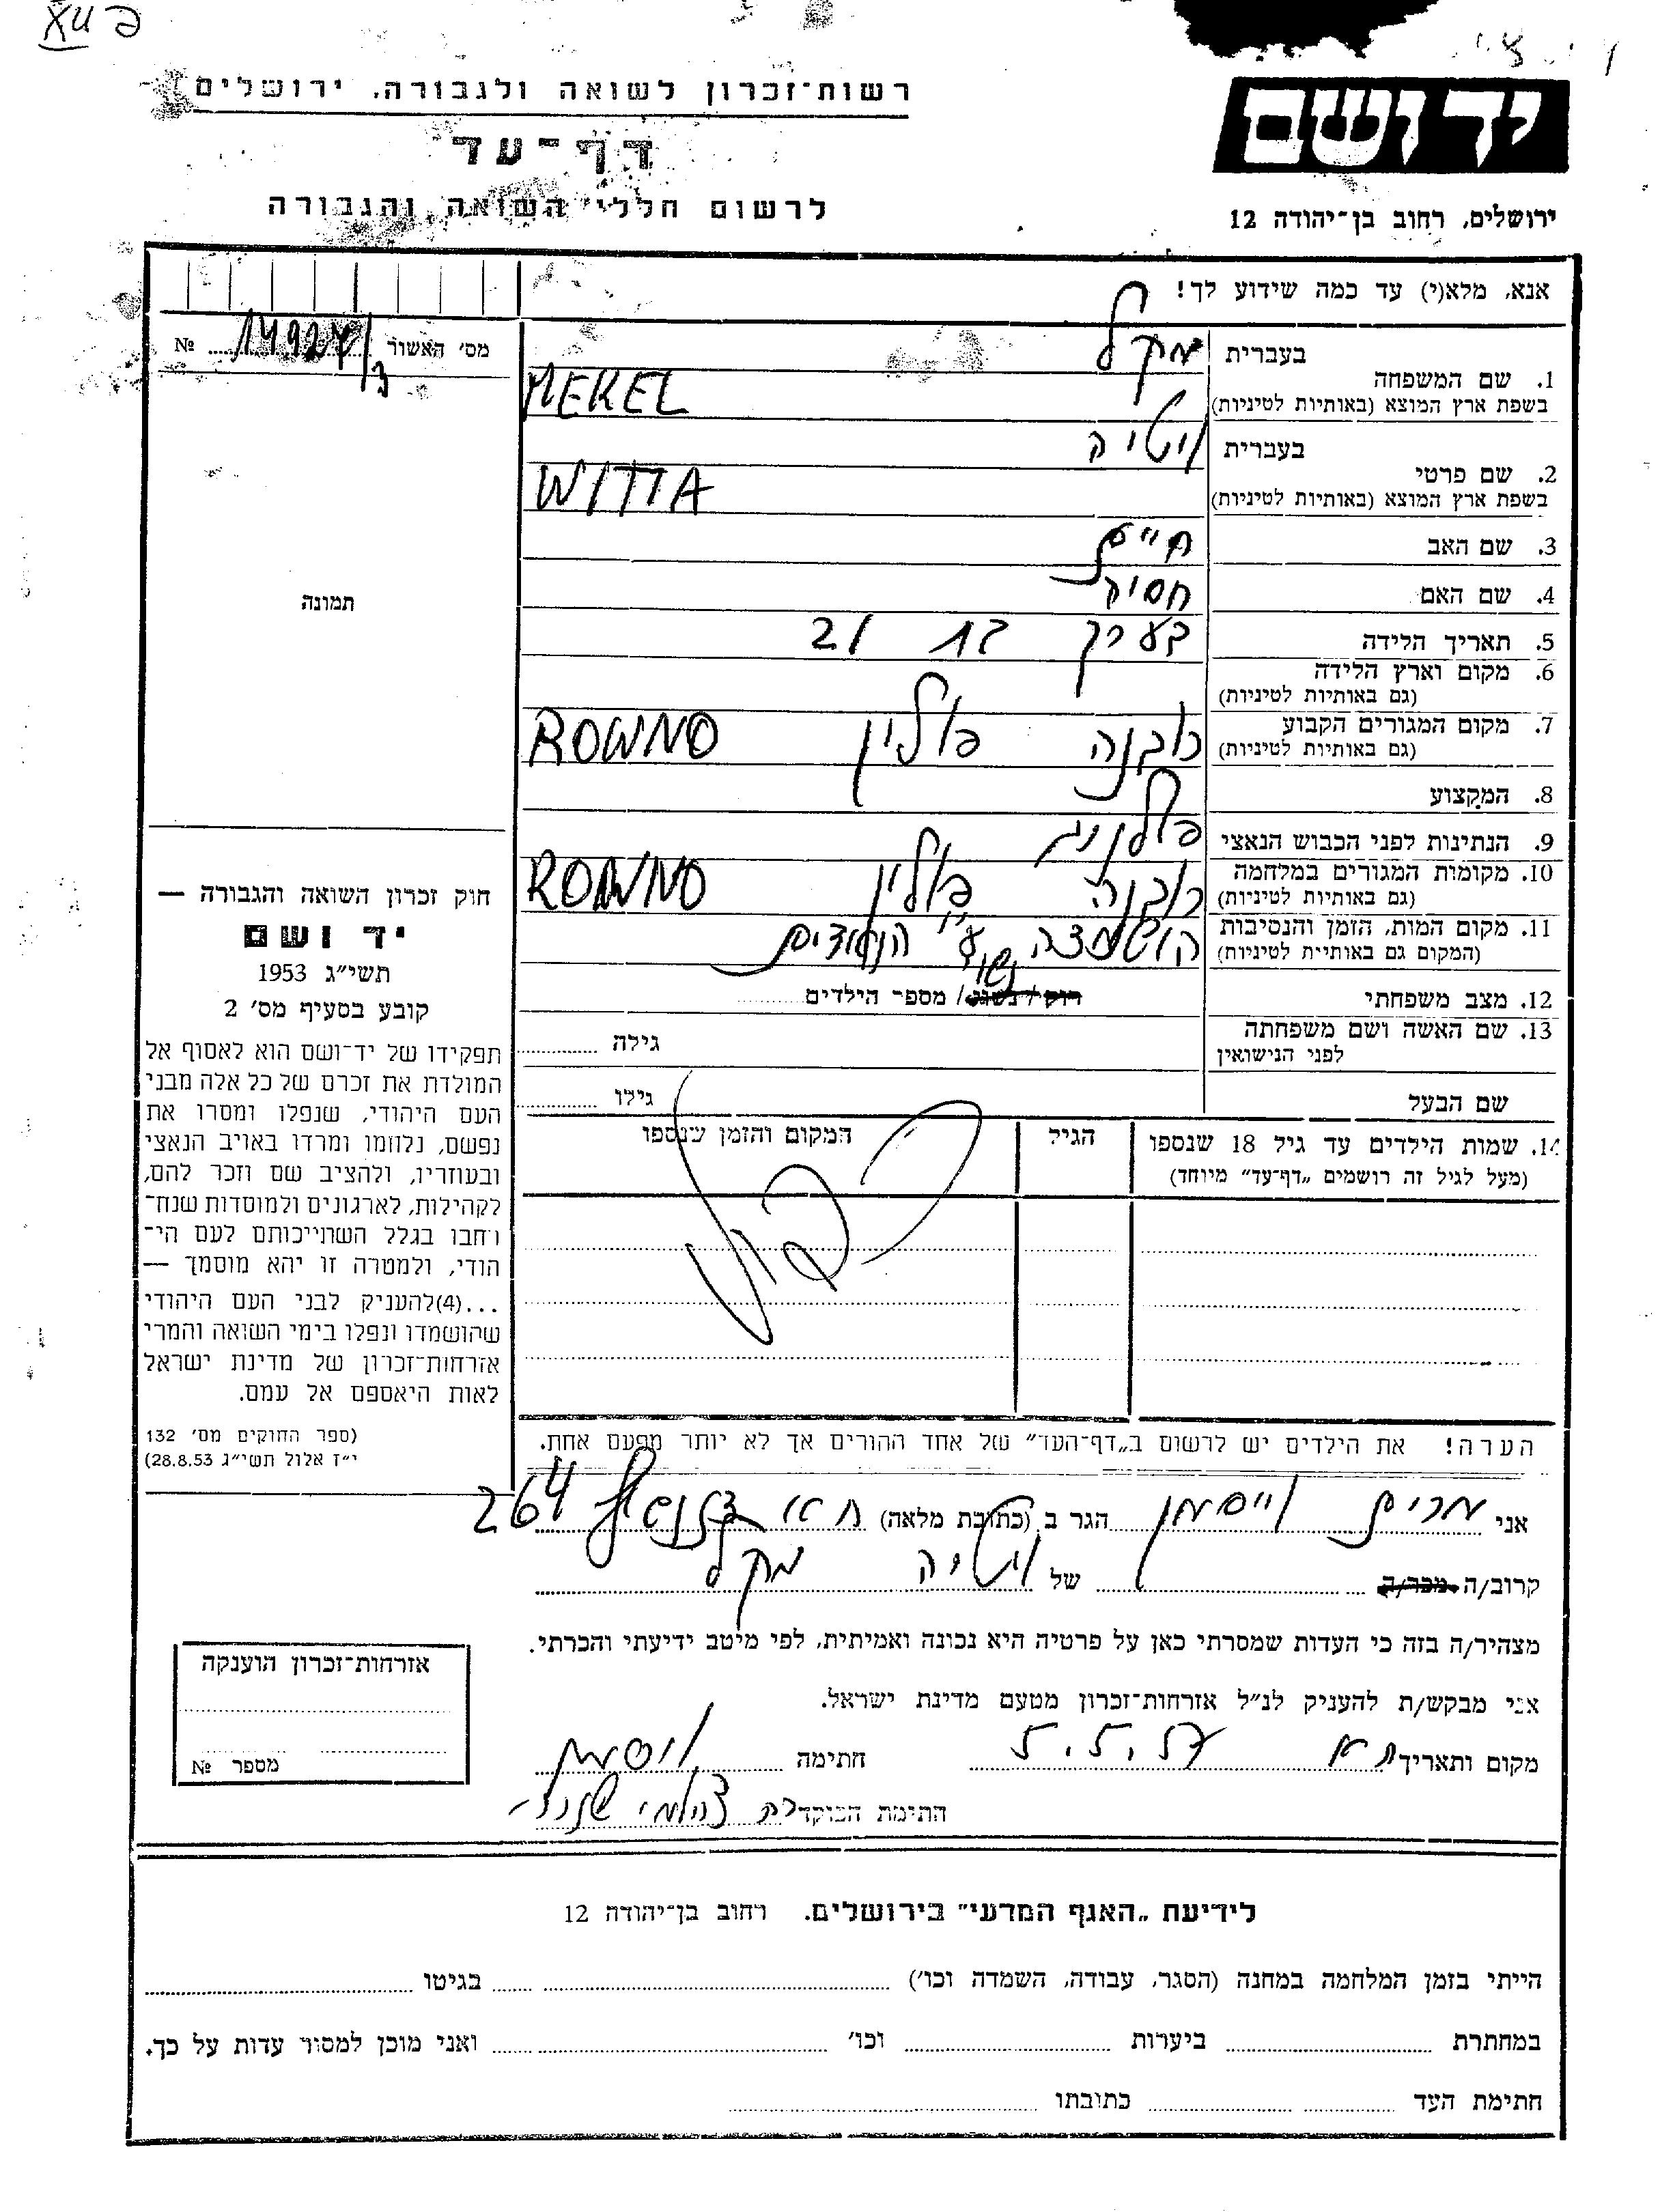 רשות־זכרון לשואה ולגבורה, ירושלים
דף־עד
לרשום חללי השואה והגבורה
יד ושם
ירושלים, רחוב בן־יהודה 12
אנא, מלא(י) עד כמה שידוע לך!
מס' האשור 14927/3 №
1. שם המשפחה בעברית מקל
בשפת ארץ המוצא (באותיות לטיניות) MEKEL
2. שם פרטי בעברית ויטיה
בשפת ארץ המוצא (באותיות לטיניות) WITIA
3. שם האב חיים
4. שם האם חסיה
5. תאריך הלידה בערך בת 21
6. מקום וארץ הלידה
(גם באותיות לטיניות)
7. מקום המגורים הקבוע רובנה פולין ROWNO
(גם באותיות לטיניות)
8. המקצוע
9. הנתינות לפני הכבוש הנאצי פולנית
10. מקומות המגורים במלחמה רובנה פולין ROWNO
(גם באותיות לטיניות)
11. מקום המות, הזמן והנסיבות הושמדה ע"י הנאצים
(המקום גם באותיית לטיניות)
12. מצב משפחתי רוק / נשוי / מספר הילדים
13. שם האשה ושם משפחתה לפני הנישואין גילה
שם הבעל גילו
14. שמות הילדים עד גיל 18 שנספו הגיל המקום והזמן שנספו
(מעל לגיל זה רושמים „דף־עד" מיוחד)
הערה! את הילדים יש לרשום ב„דף־העד" של אחד ההורים אך לא יותר מפעם אחת.
תמונה
חוק זכרון השואה והגבורה —
יד ושם
תשי"ג 1953
קובע בסעיף מס' 2
תפקידו של יד־ושם הוא לאסוף אל
המולדת את זכרם של כל אלה מבני
העם היהודי, שנפלו ומסרו את
נפשם, נלחמו ומרדו באויב הנאצי
ובעוזריו, ולהציב שם וזכר להם,
לקהילות, לארגונים ולמוסדות שנח־
רבו בגלל השתייכותם לעם הי־
הודי, ולמטרה זו יהא מוסמך —
...(4)להעניק לבני העם היהודי
שהושמדו ונפלו בימי השואה והמרי
אזרחות־זכרון של מדינת ישראל
לאות היאספם אל עמם.
(ספר החוקים מס' 132
י"ז אלול תשי"ג 28.8.53)
אני מרים ויסמן הגר ב (כתובת מלאה) ת א 264
קרוב/ה מכר/ה של ויטיה מקל
מצהיר/ה בזה כי העדות שמסרתי כאן על פרטיה היא נכונה ואמיתית, לפי מיטב ידיעתי והכרתי.
אני מבקש/ת להעניק לנ"ל אזרחות־זכרון מטעם מדינת ישראל.
מקום ותאריך ת א 5.5.57 חתימה ויסמן
חתימת הפוקד
אזרחות־זכרון הוענקה
מספר №
לידיעת „האגף המדעי" בירושלים. רחוב בן־יהודה 12
הייתי בזמן המלחמה במחנה (הסגר, עבודה, השמדה וכו') בגיטו
במחתרת ביערות וכו' ואני מוכן למסור עדות על כך.
חתימת העד כתובתו